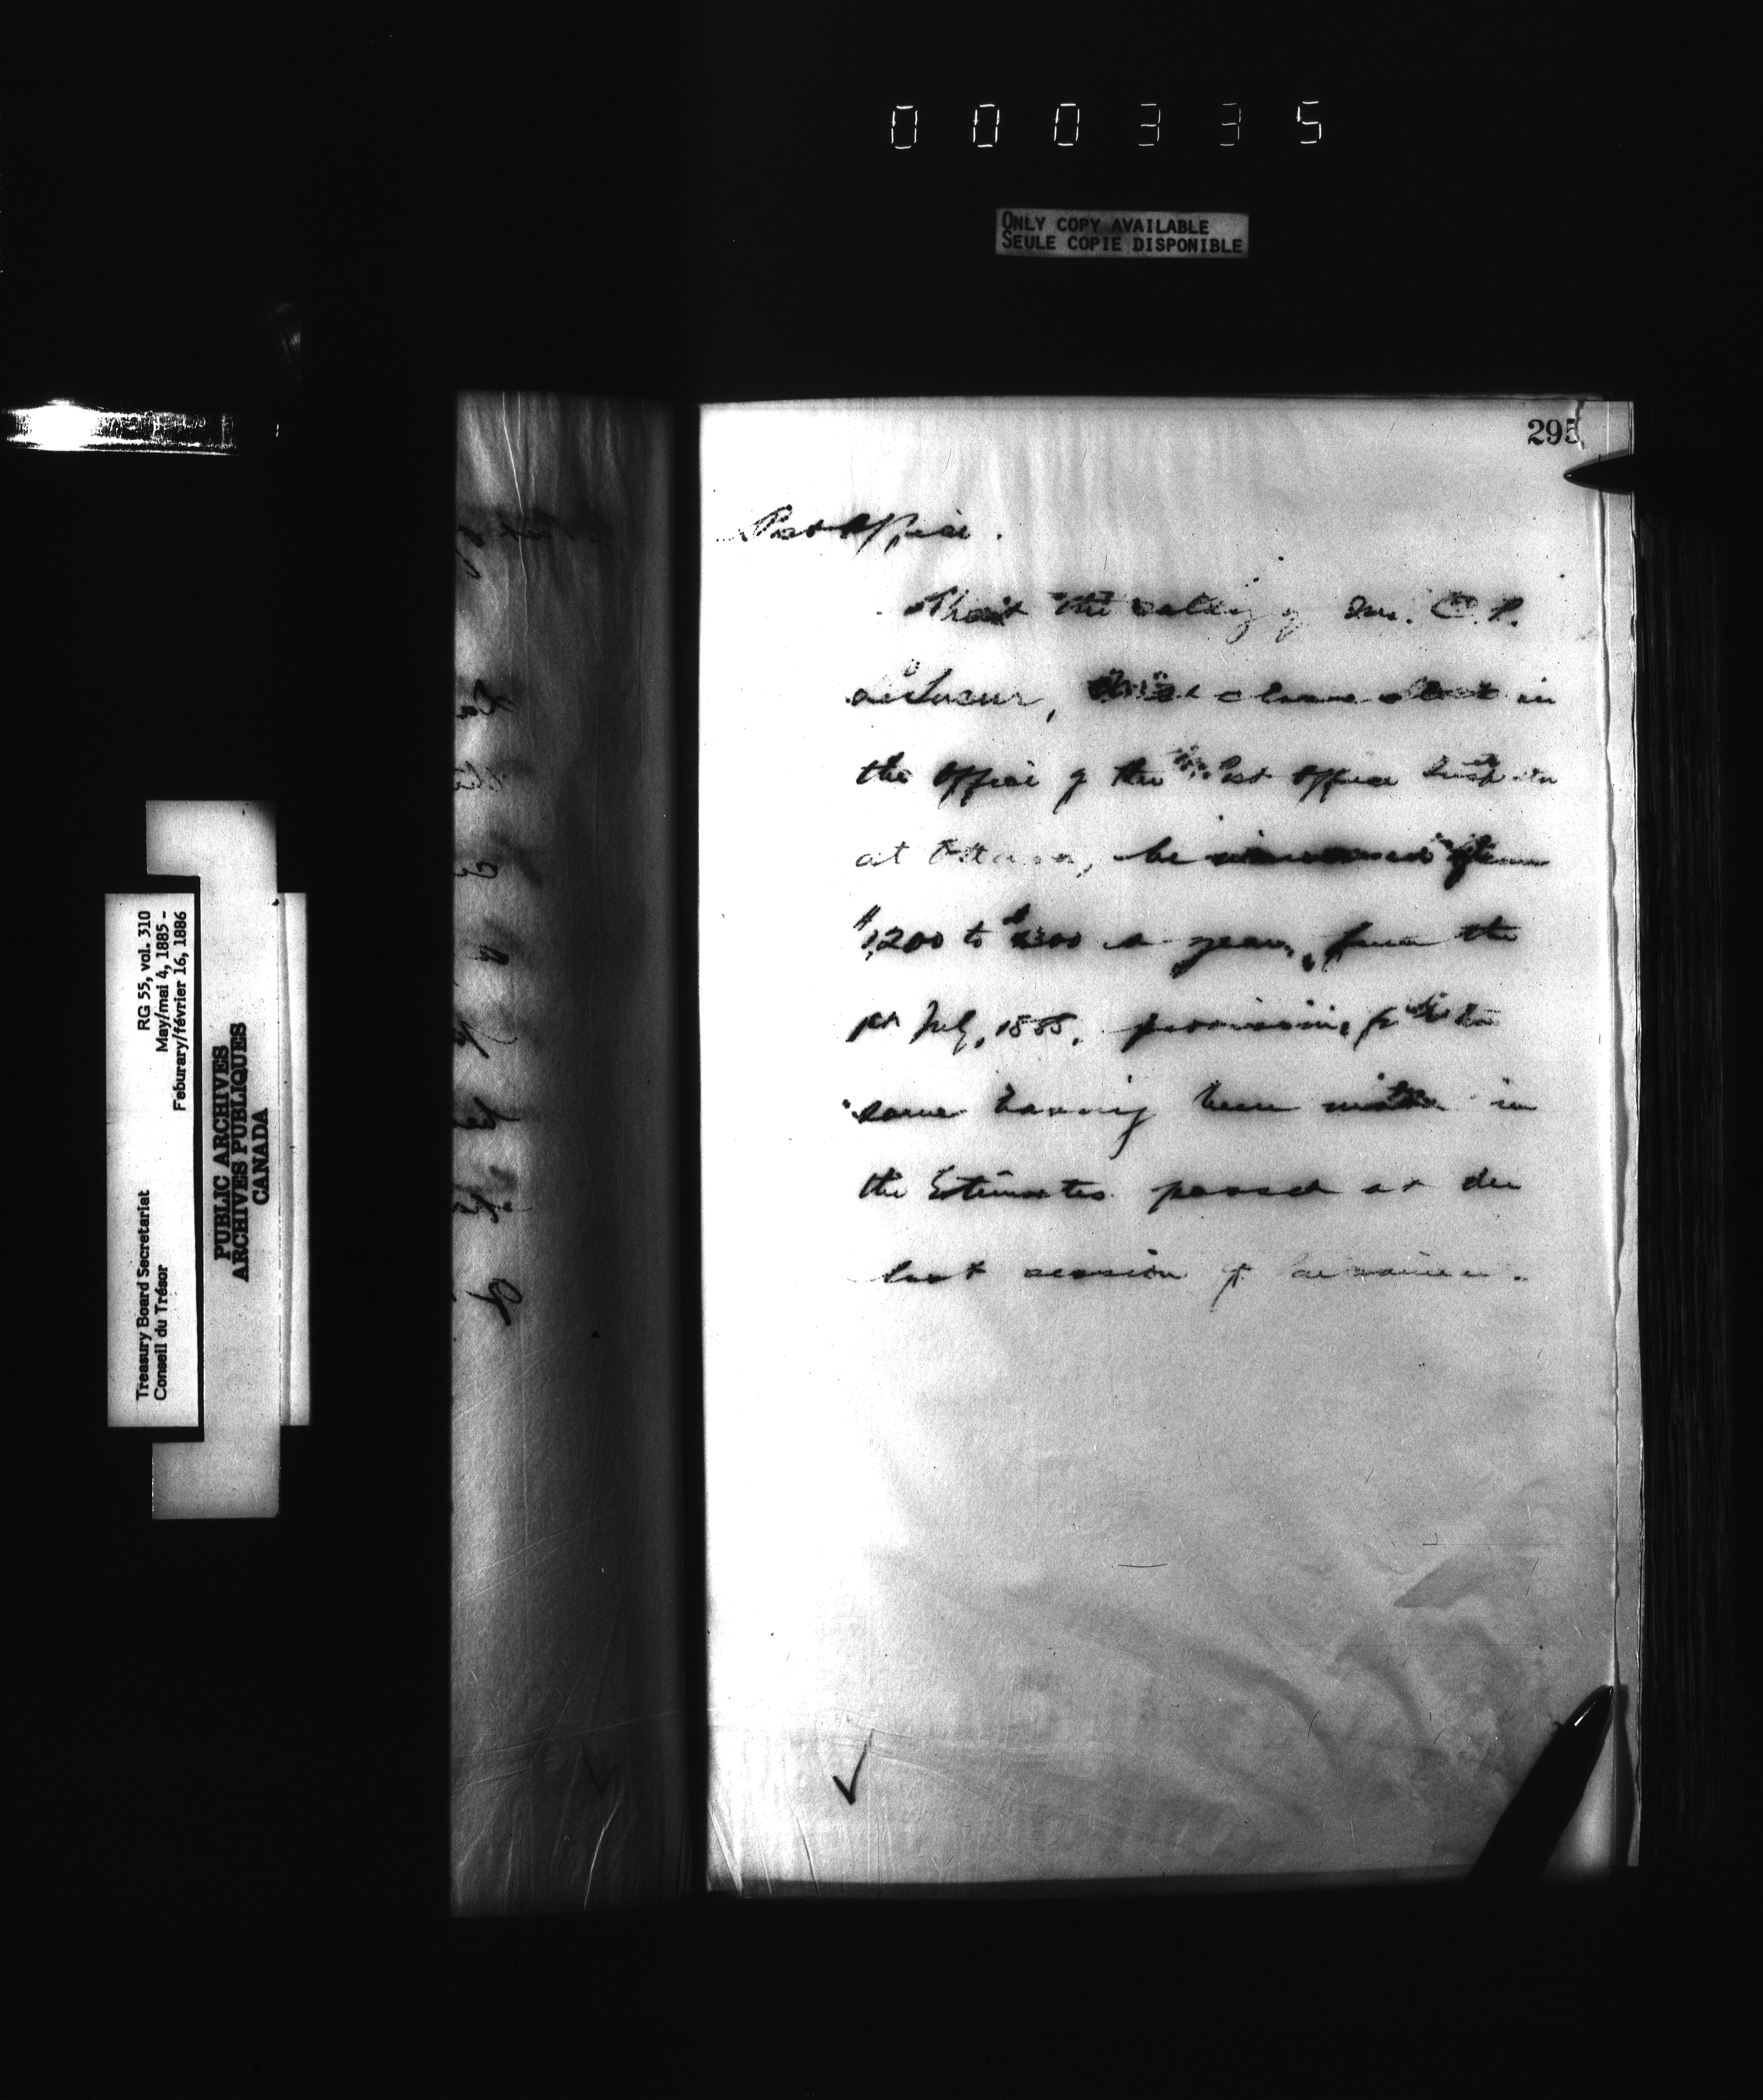 000335
ONLY COPY AVAILABLE
SEULE COPIE DISPONIBLE
295
Post Office.
That the salary of Mr. C. P.
LeSueur, class clerk in
the Office of the Post Office Inspector
at Ottawa, be increased from
$1200 to a year, from the
1st July, 1885, provision for the
same having been made in
the Estimates passed at the
last session of Parliament.
Treasury Board Secretariat RG 55, vol. 310
Conseil du Trésor May/mai 4, 1885 -
Feburary/février 16, 1886
PUBLIC ARCHIVES
ARCHIVES PUBLIQUES
CANADA